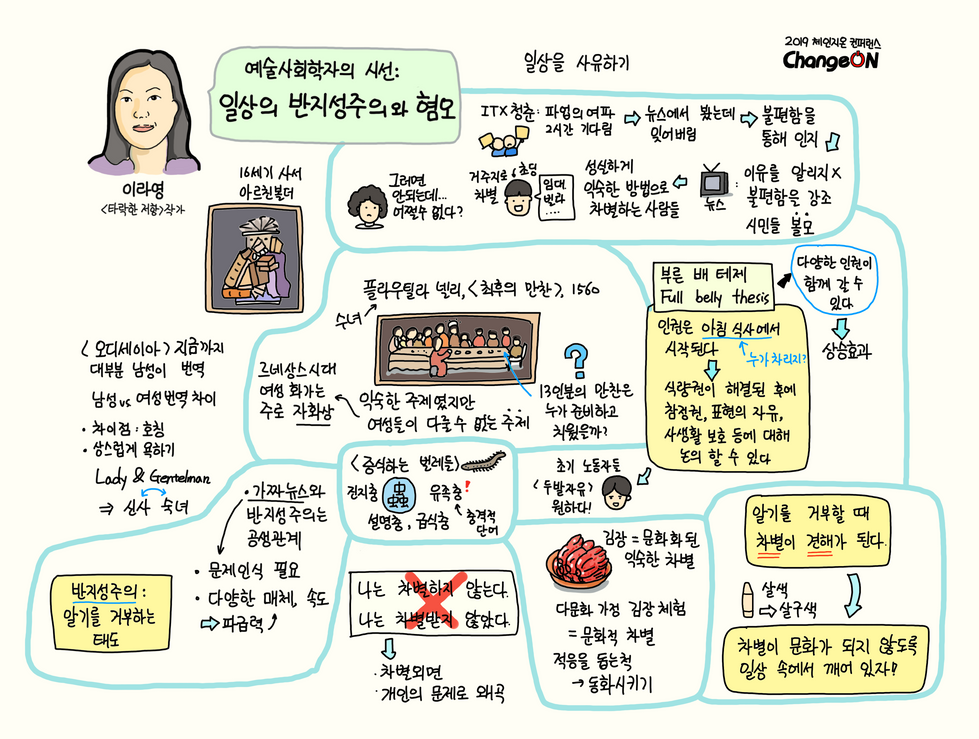 2019 체인지온 컨퍼런스
ChangeON
예술사회학자의 시선:
일상의 반지성주의와 혐오
이라영
<타락한 저항>작가
일상을 사유하기
ITX청춘: 파업의 여파
2시간 기다림
뉴스에서 봤는데
잊어버림
불편함을
통해 인지
뉴스
: 이유를 알리지 X
불편함을 강조
시민들 볼모
성실하게
익숙한 방법으로
차별하는 사람들
거주지로
차별
초딩
임대
번다
....
그러면
안되는데...
어쩔수 없다?
16세기 사서
아르친볼더
<오디세이아> 지금까지
대부분 남성이 번역
남성 vs 여성번역 차이
• 차이점 : 호칭
• 상스럽게 욕하기
Lady & Gentelman
⇒ 신사 숙녀
플라우틸라 넬리, <최후의 만찬>, 1560
수녀
르네상스시대
여성 화가는
주로 자화상
익숙한 주제였지만
여성들이 다룰수 없는 주제
?
13인분의 만찬은
누가 준비하고
치웠을까?
부른 배 테제
Full belly thesis
다양한 인권이
함께 갈 수
있다
상승효과
인권은 아침 식사에서
시작된다
누가차리지?
식량권이 해결된 후에
참정권, 표현의 자유,
사생활 보호 등에 대해
논의 할 수 있다
초기 노동자들
<두발자유>
원하다!
<증식하는 벌레들>
진지충
蟲
유족충!
설명충, 급식충
충격적
단어
• 가짜뉴스와
반지성주의는
공생관계
• 문제인식 필요
• 다양한 매체, 속도
⇨ 파급력
반지성주의 :
알기를 거부하는
태도
나는 차별하지 않는다.
나는 차별받지 않았다.
· 차별외면
· 개인의 문제로 왜곡
김장 = 문화화 된
익숙한 차별
다문화 가정 김장 체험
= 문화적 차별
적응을 돕는척
→ 동화시키기
알기를 거부할 때
차별이 견해가 된다.
살색
→살구색
차별이 문화가 되지 않도록
일상 속에서 깨어 있자!